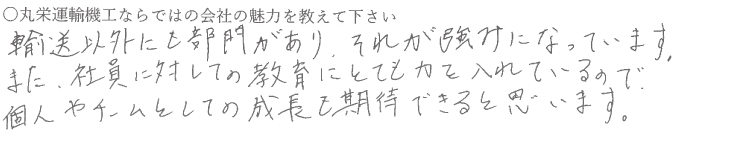 ○丸栄運輸機工ならではの会社の魅力を教えて下さい
輸送以外にも部門があり、それが強みになっています。
また、社員に対しての教育にとても力を入れているので、
個人やチームとしての成長も期待できると思います。